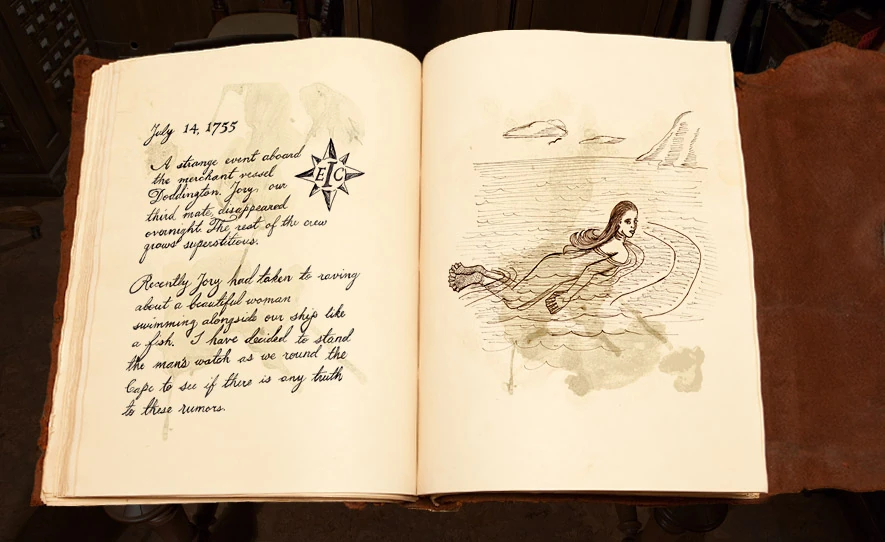 July 14, 1755
A strange event aboard
the merchant vessel
Doddington. Jory, our
third mate, disappeared
overnight. The rest of the crew
grows superstitious.
EIC
Recently Jory had taken to raving
about a beautiful woman
swimming alongside our ship like
a fish. I have decided to stand
the man's watch as we round the
Cape to see if there is any truth
to these rumors.